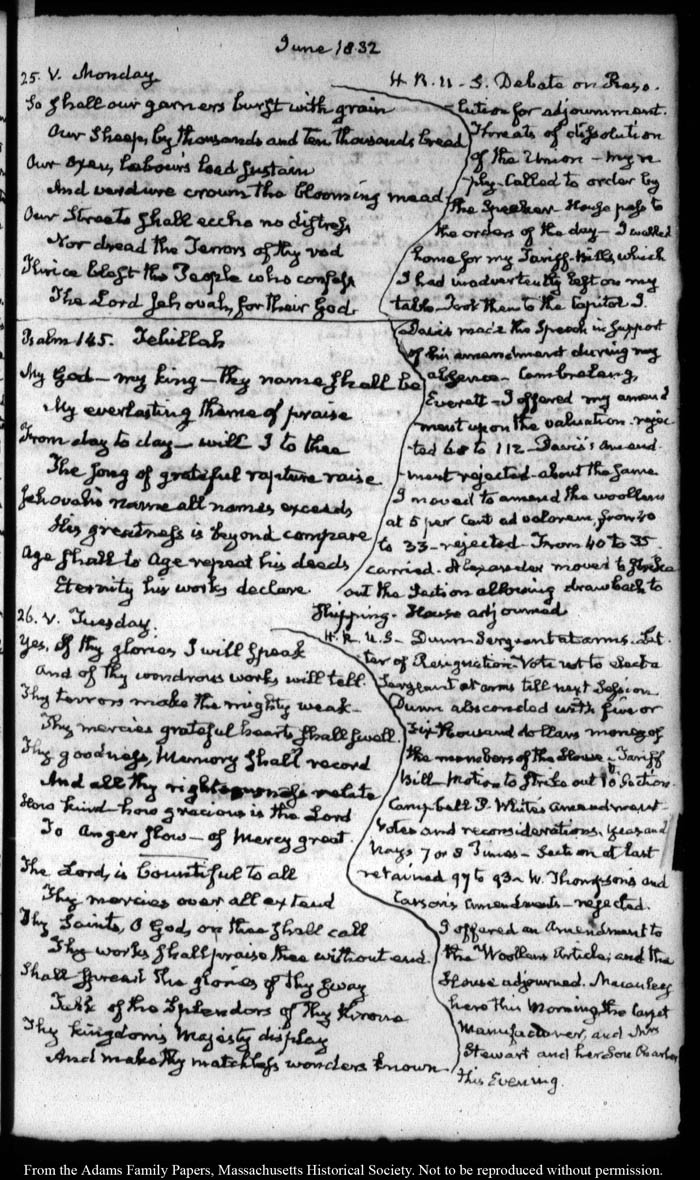 June 1832
25. V. Monday
So shall our garners burst with grain
Our Sheep, by thousands and ten thousands bread
Our oxen, labour's load sustain
And verdure crown the blooming mead
Our Streets shall eccho no distress
Nor dread the Terrors of thy rod
Thrice blest the People who confess
The Lord Jehovah, for their God.
H. R. U.S. Debate on Reso-
lution for adjournment.
Threats of dissolution
of the Union - my re
ply. Called to order by
the Speaker. House pass to
the orders of the day - I walked
home for my Tariff-Bills, which
I had inadvertently left on my
table - Took them to the Capitol. J.
Davis made his Speech in support
of his amendment during my
absence - Cambreleng,
Everett - I offered my amend
ment upon the valuation. rejec
ted 68 to 112 - Davis's amend-
ment rejected - about the same
I moved to amend the woollens
at 5 per Cent ad valorem, from 40
to 33 - rejected - From 40 to 35
carried. Alexander moved to strike
out the Section allowing drawback to
Shipping. House adjourned
Psalm 145. Tehillah
My God - my king - thy name shall be
My everlasting theme of praise
From day to day - will I to thee
The song of grateful rapture raise
Jehovah's name all names exceeds
His greatness is beyond compare
Age shall to Age repeat his deeds
Eternity his works declare
26. V. Tuesday.
Yes, of thy glories I will speak
And of thy wondrous works will tell.
Thy terrors make the mighty weak -
Thy mercies grateful hearts shall swell.
Thy goodness, Memory shall record
And all thy righteousness relate
How kind - how gracious is the Lord
To Anger slow - of Mercy great.
The Lord, is bountiful to all
Thy mercies over all extend
Thy Saints, O God, on thee shall call
Thy works shall praise thee without end.
Shall spread the glories of thy sway
Talk of the Splendors of thy throne
Thy kingdom's Majesty display
And make thy matchless wonders known
H. R. U.S. - Dunn Sergeant at arms. Let
ter of Resignation. Vote not to elect a
Sergeant at arms till next Session
Dunn absconded with five or
Six thousand dollars money of
the members of the House - Tariff
Bill - Motion to strike out 10th Section.
Campbell P. White's amendment -
Votes and reconsiderations, Yeas and
Nays 7 or 8 Times - Section at last
retained 97 to 93 - W. Thompson's and
Carson's Amendments - rejected.
I offered an Amendment to
the Woollen Article; and the
House adjourned. Macauley
here this Morning the Carpet
Manufacturer, and Mrs
Stewart and her Son Charles,
this Evening.
From the Adams Family Papers, Massachusetts Historical Society. Not to be reproduced without permission.